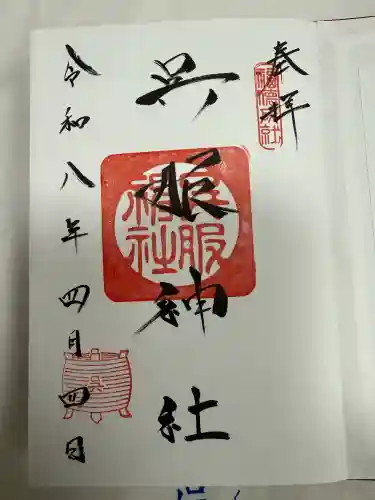 奉拝
呉服神社
呉服神社
令和八年四月四日
呉